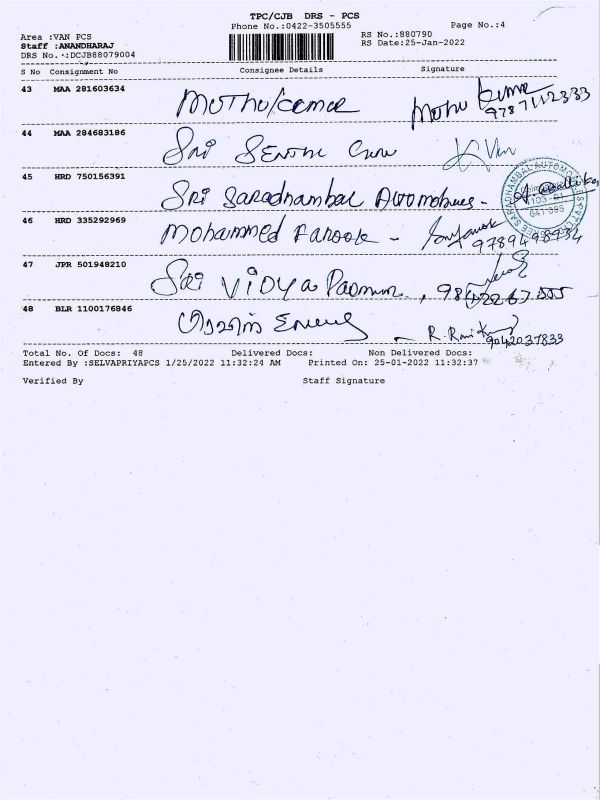 TPC/CJB DRS - PCS
Phone No.:0422-3505555 Page No.:4
Area :VAN PCS RS No.:880790
Staff :ANANDHARAJ RS Date:25-Jan-2022
DRS No. :DCJB88079004
S No Consignment No Consignee Details Signature
43 MAA 281603634 Muthukumar Muthu Kumar
9787112333
44 MAA 284683186 Sri Senthil
45 HRD 750156391 Sri Saradhambal Automobiles -
46 HRD 335292969 Mohammed Farook -
9789498934
47 JPR 501948210 Sri Vidya , 9842267555
48 BLR 1100176846 - R. Ravi Kumar
9042037833
Total No. Of Docs: 48 Delivered Docs: Non Delivered Docs:
Entered By :SELVAPRIYAPCS 1/25/2022 11:32:24 AM Printed On: 25-01-2022 11:32:37
Verified By Staff Signature